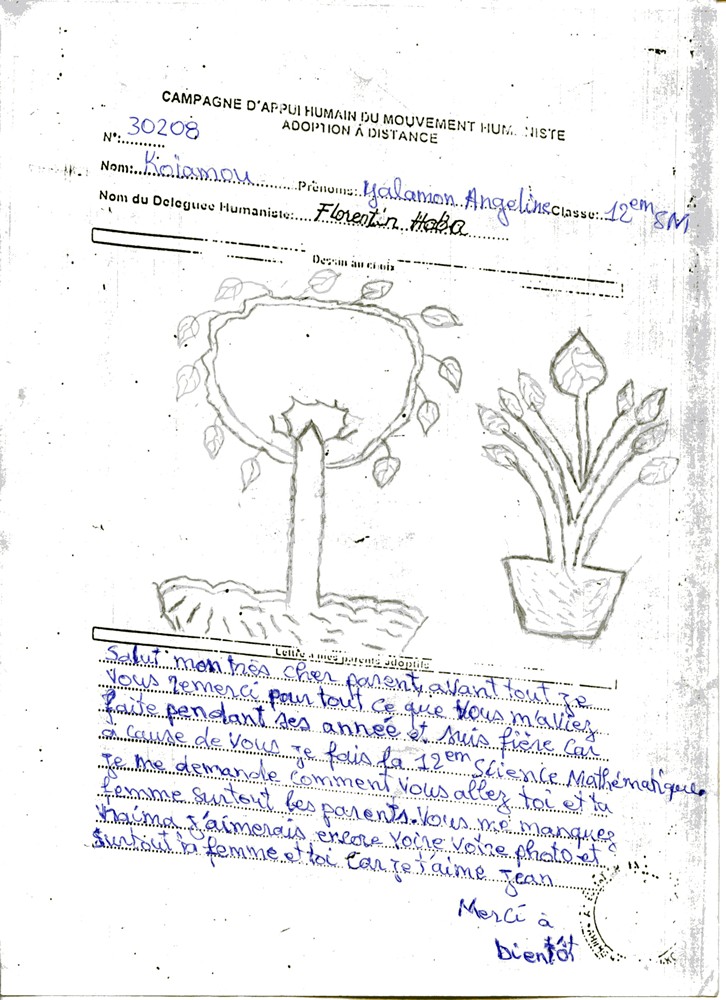 CAMPAGNE D'APPUI HUMAIN DU MOUVEMENT HUM NISTE
ADOPTION À DISTANCE
N°:.......... 30208
Nom:.. Koiamou ........ Prénoms: Yalamon Angeline Classe:.. 12em SM
Nom du Deleguee Humaniste:.... Florentin Haba ..........
Dessin au choix
Lettre à mes parents adoptifs
Salut mon très cher parent, avant tout je
vous remerci pour tout ce que vous m'aviez
faite pendant ses année et suis fière car
a cause de vous je fais la 12em Science Mathématique.
je me demande comment vous allez toi et ta
femme surtout les parents. vous me manquez
vraima j'aimerais encore voire votre photo et
surtout ta femme et toi car je t'aime jean
Merci à
bientôt